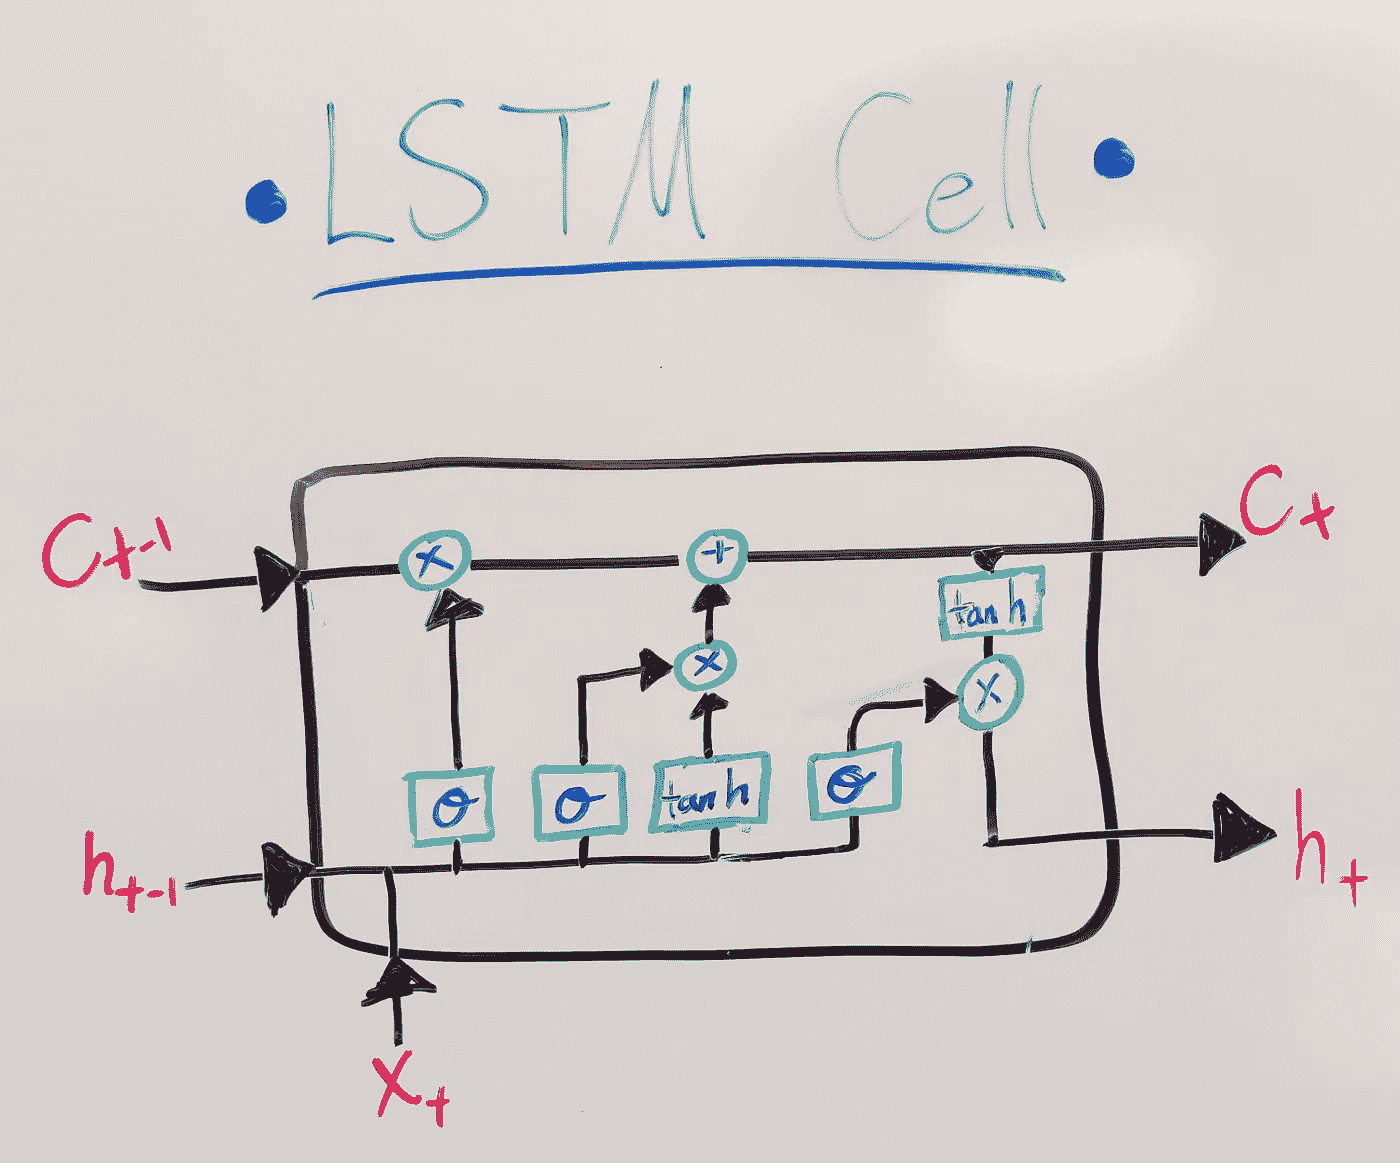 • LSTM Cell •
C t-1
C t
x
+
tanh
x
x
σ
σ
tanh
σ
h t-1
h t
X t